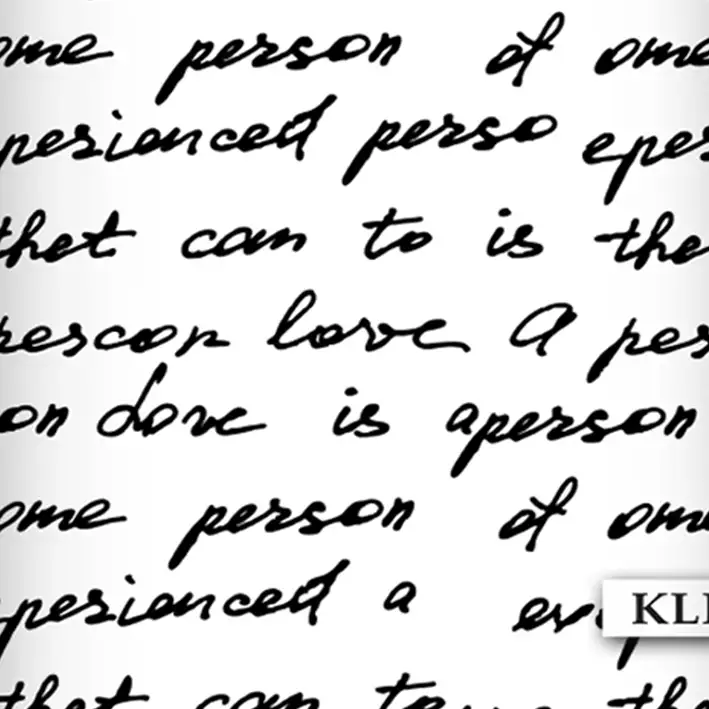 ome person of ome
perienced perso eper
that can to is the
rescon love A per
on dove is aperson
ome person of om
perienced a ex
KLI
that can the